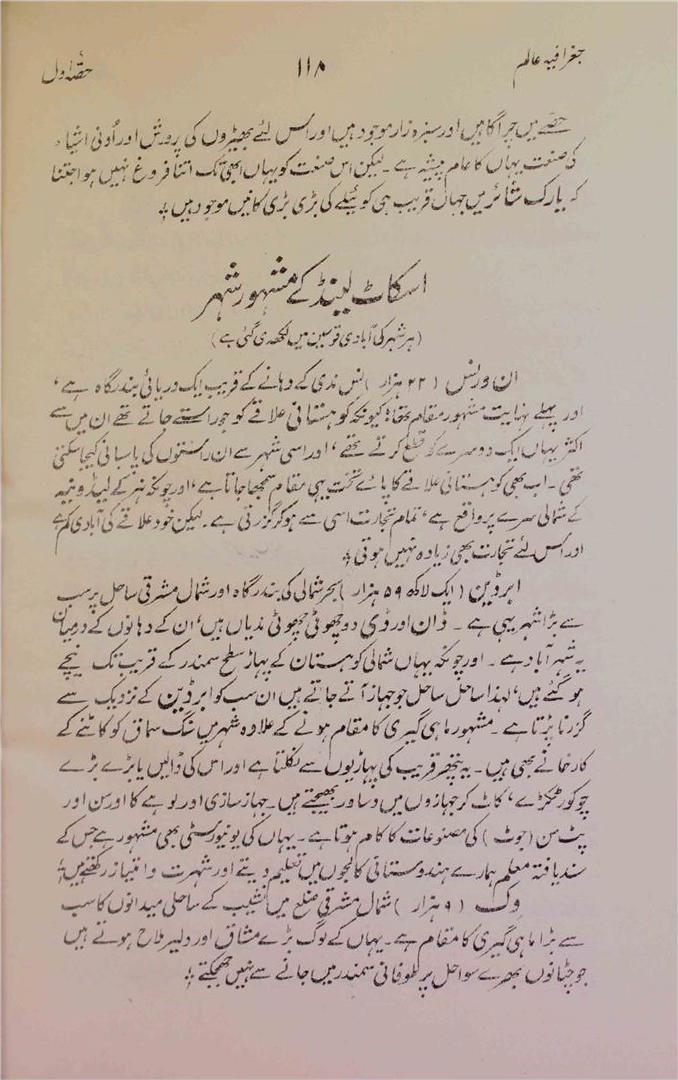 جغرافیہ عالم
۱۱۸
حصّہ اول
حصّے میں چراگاہیں اور سبزہ زار موجود ہیں اور اس لئے بھیڑوں کی پرورش اور اُونی اشیاء
کی صنعت یہاں کا عام پیشہ ہے ۔ لیکن اس صنعت کو یہاں ابھی تک اتنا فروغ نہیں ہوا جتنا
کہ یارک شائر میں جہاں قریب ہی کوئیلے کی بڑی بڑی کانیں موجود ہیں ؛
اسکاٹ لینڈ کے مشہور شہر
(ہر شہر کی آبادی قوسین میں لکھدی گئی ہے)
ان ورنس (۲۲ ہزار) نس ندی کے دہانے کے قریب ایک دریائی بندرگاہ ہے،
اور پہلے نہایت مشہور مقام تھا؛ کیونکہ کوہستانی علاقے کو جو راستے جاتے تھے ان میں سے
اکثر یہاں ایک دوسرے کو قطع کرتے تھے، اور اسی شہر سے ان راستوں کی پاسبانی کیجا سکتی
تھی ۔ اب بھی کوہستانی علاقے کا پائے تخت یہی مقام سمجھا جاتا ہے، اور چونکہ نہر کے لیڈونیہ
کے شمالی سرے پر واقع ہے، تمام تجارت اسی سے ہو کر گزرتی ہے ۔ لیکن خود علاقے کی آبادی کم ہے
اور اس لئے تجارت بھی زیادہ نہیں ہوتی ؛
ابرڈین (ایک لاکھ ۵۹ ہزار) بحر شمالی کی بندرگاہ اور شمال مشرقی ساحل پر سب
سے بڑا شہر یہی ہے ۔ ڈان اور ڈی دو چھوٹی چھوٹی ندیاں ہیں، ان کے دہانوں کے درمیان
یہ شہر آباد ہے ۔ اور چونکہ یہاں شمالی کوہستان کے پہاڑ سطح سمندر کے قریب تک نیچے
ہو گئے ہیں، لہذا ساحل ساحل جو جہاز آتے جاتے ہیں ان سب کو ابرڈین کے نزدیک سے
گزرنا پڑتا ہے ۔ مشہور ماہی گیری کا مقام ہونے کے علاوہ شہر میں سنگ سماق کو کاٹنے کے
کارخانے بھی ہیں ۔ یہ پتھر قریب کی پہاڑیوں سے نکلتا ہے اور اس کی ڈالیں یا بڑے بڑے
چوکور ٹکڑے، کاٹ کر جہازوں میں دساور بھیجتے ہیں ۔ جہاز سازی اور لوہے کا اور سن اور
پٹ سن (جوٹ) کی مصنوعات کا کام ہوتا ہے ۔ یہاں کی یونیورسٹی بھی مشہور ہے جس کے
سند یافتہ معلم ہمارے ہندوستانی کالجوں میں تعلیم دیتے اور شہرت و امتیاز رکھتے ہیں ؛
وک (۹ ہزار) شمال مشرقی ضلع میں نشیب کے ساحلی میدانوں کا سب
سے بڑا ماہی گیری کا مقام ہے ۔ یہاں کے لوگ بڑے مشاق اور دلیر ملاح ہوتے ہیں
جو چٹانوں بھرے سواحل پر طوفانی سمندر میں جانے سے نہیں جھجکتے ؛